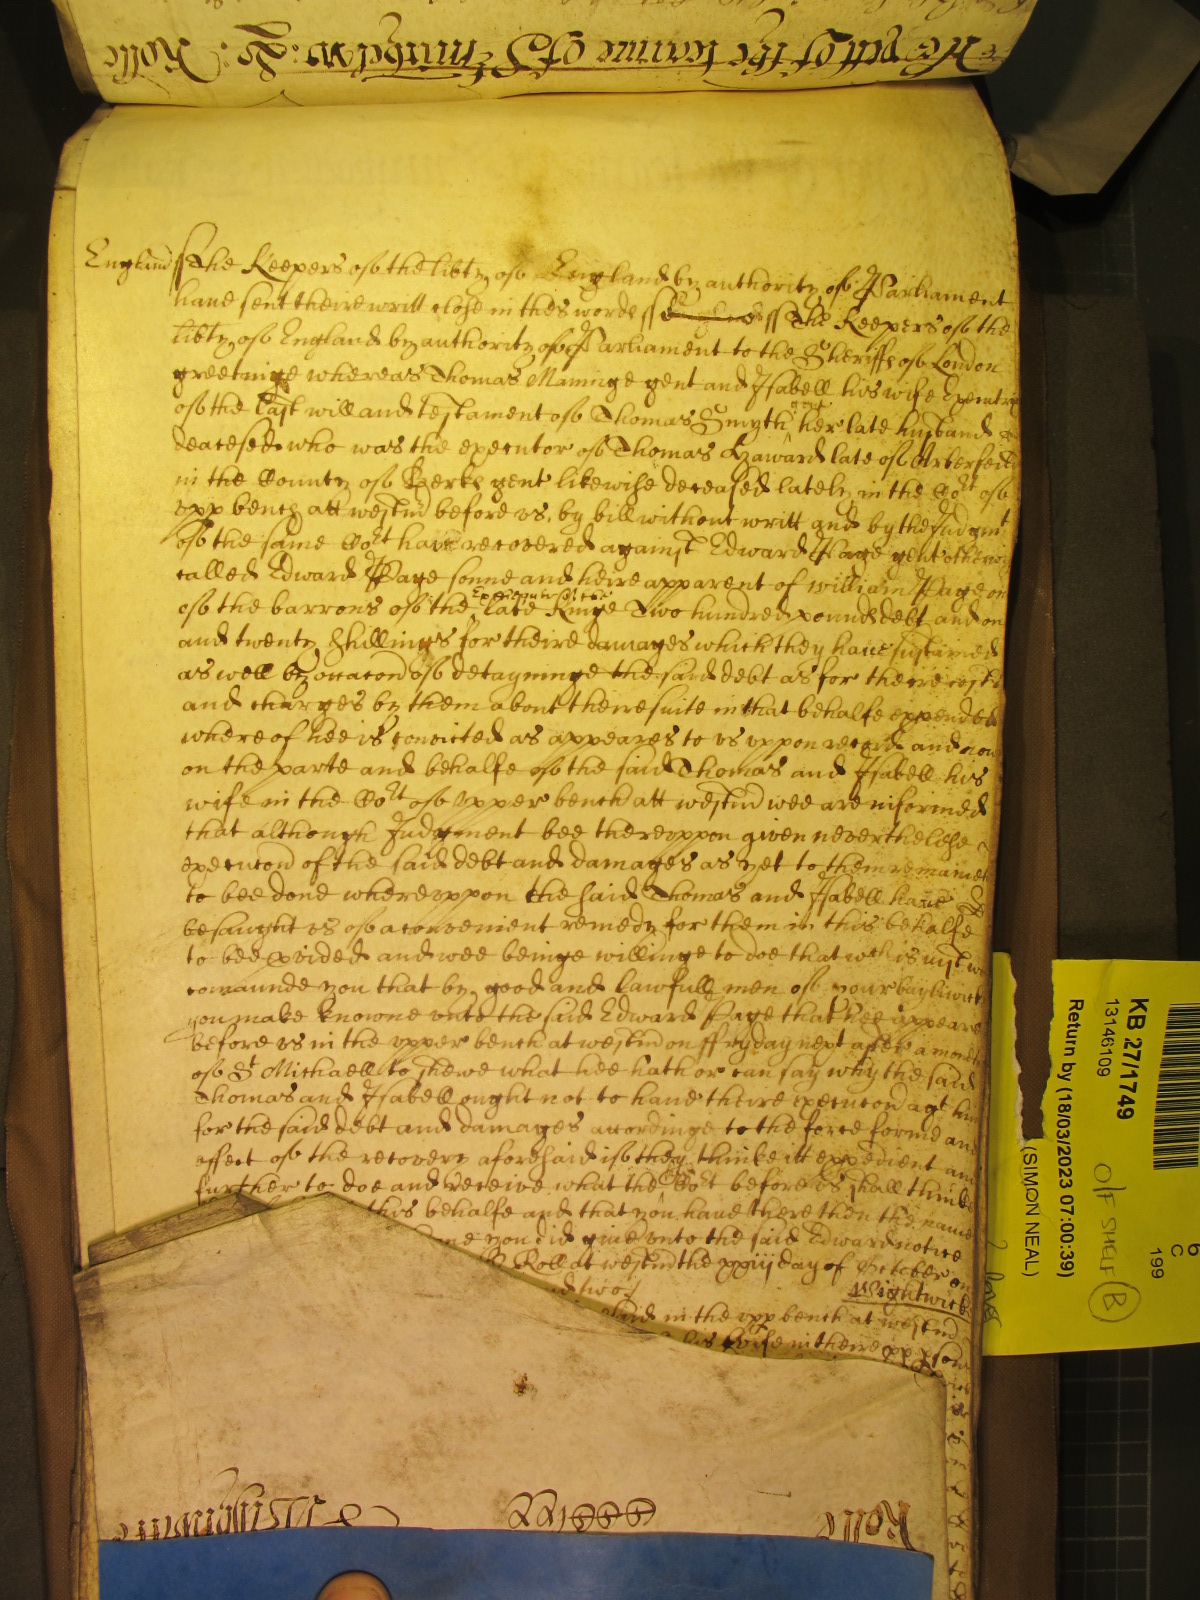 England ss The Keepers of the lib̃ty of England by authority of Parliament
have sent theire writt close in thes words ss ss The Keepers of the
lib̃ty of England by authority of Parliament to the Sheriffs of London
greetinge whereas Thomas Maninge gent and Isabell his wife Executrix
of the last will and testament of Thomas Smyth gent her late husband
deacesed who was the executor of Thomas late of
in the County of Berks gent likewise deceased lately in the Cort of
vpp bench att westm̃ before vs, by bill without writt and by the Judgmt
of the same Cort have recovered against Edward Page gent otherwise
called Edward Page sonne and heire apparent of William Page one
of the barrons of the Exchequer of the late Kinge Two hundred pounds debt and one
and twenty shillings for theire damages which they have sustained
as well by occac̃on of detayninge the said debt as for theire costs
and charges by them about theire suite in that behalfe expended
whereof hee is convicted as appeares to vs vppon record and now
on the parte and behalfe of the said Thomas and Isabell his
wife in the Cort of Vpper bench att westm̃ wee are informed
that although Judgment bee therevppon given neverthelesse
execuc̃on of the said debt and damages as yet to them remaines
to bee done wherevppon the said Thomas and Isabell have
besaught vs of a convenient remedy for them in this behalfe
to bee p̱vided and wee beinge willinge to doe that wch is just
com̃aunde you that by good and lawfull men of your bayliwick
you make knowne vnto the said Edward Page that hee appeare
before vs in the vpper bench at westm̃ on ffryday next after a moneth
of St Michaell to shewe what hee hath or can say why the said
Thomas and Isabell ought not to have theire execuc̃on agt him
for the said debt and damages accordinge to the force forme and
effect of the recovery aforesaid if they thinke itt expedient and
further to doe and receive what the Cort before vs shall thinke
this behalfe and that you have there then the names
you did give vnto the said Edward notice
Roll at westm̃ the xxiijj day of October
and two/ Wightwick
in the vpp bench at westm̃
his wife in theire p̱p̱ p̱sons
Rolle
KB 27/1749
13146109
Return by (18/03/2023 07:00:39)
(SIMON NEAL)
O/F SHELF B
6
C
199